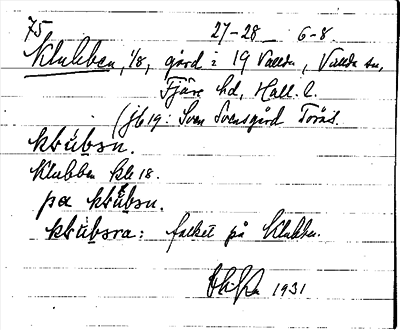 75 27-28 6-8
Klubben, 1/8, gård i 19 Vallda, Vallda sn,
Fjäre hd, Hall. l.
(jb 19: Sven Svensgård Torås.
klùbsn.
Klubben kbr 18.
pa klùbsn.
klùbsra: folket på Klubben.
1931